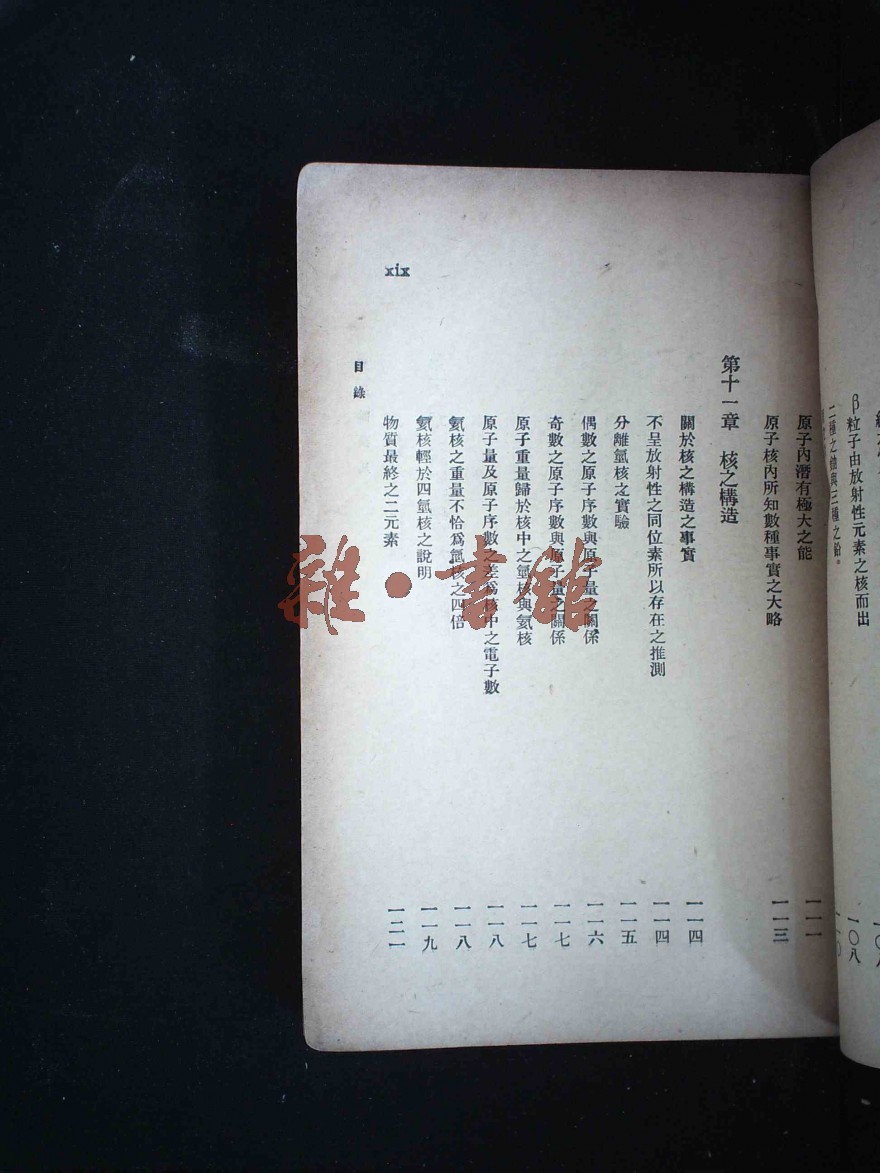 β粒子由放射性元素之核而出 一〇八
二種之鈾與三種之鉛。
原子內潛有極大之能 一一一
原子核內所知數種事實之大略 一一三
第十一章 核之構造
關於核之構造之事實 一一四
不呈放射性之同位素所以存在之推測 一一四
分離氫核之實驗 一一五
偶數之原子序數與原子量之關係 一一六
奇數之原子序數與原子量之關係 一一七
原子重量歸於核中之氫核與氦核 一一七
原子量及原子序數之差爲核中之電子數 一一八
氦核之重量不恰爲氫核之四倍 一一八
氦核輕於四氫核之說明 一一九
物質最終之二元素 一二一
目錄
xix
雜·書館